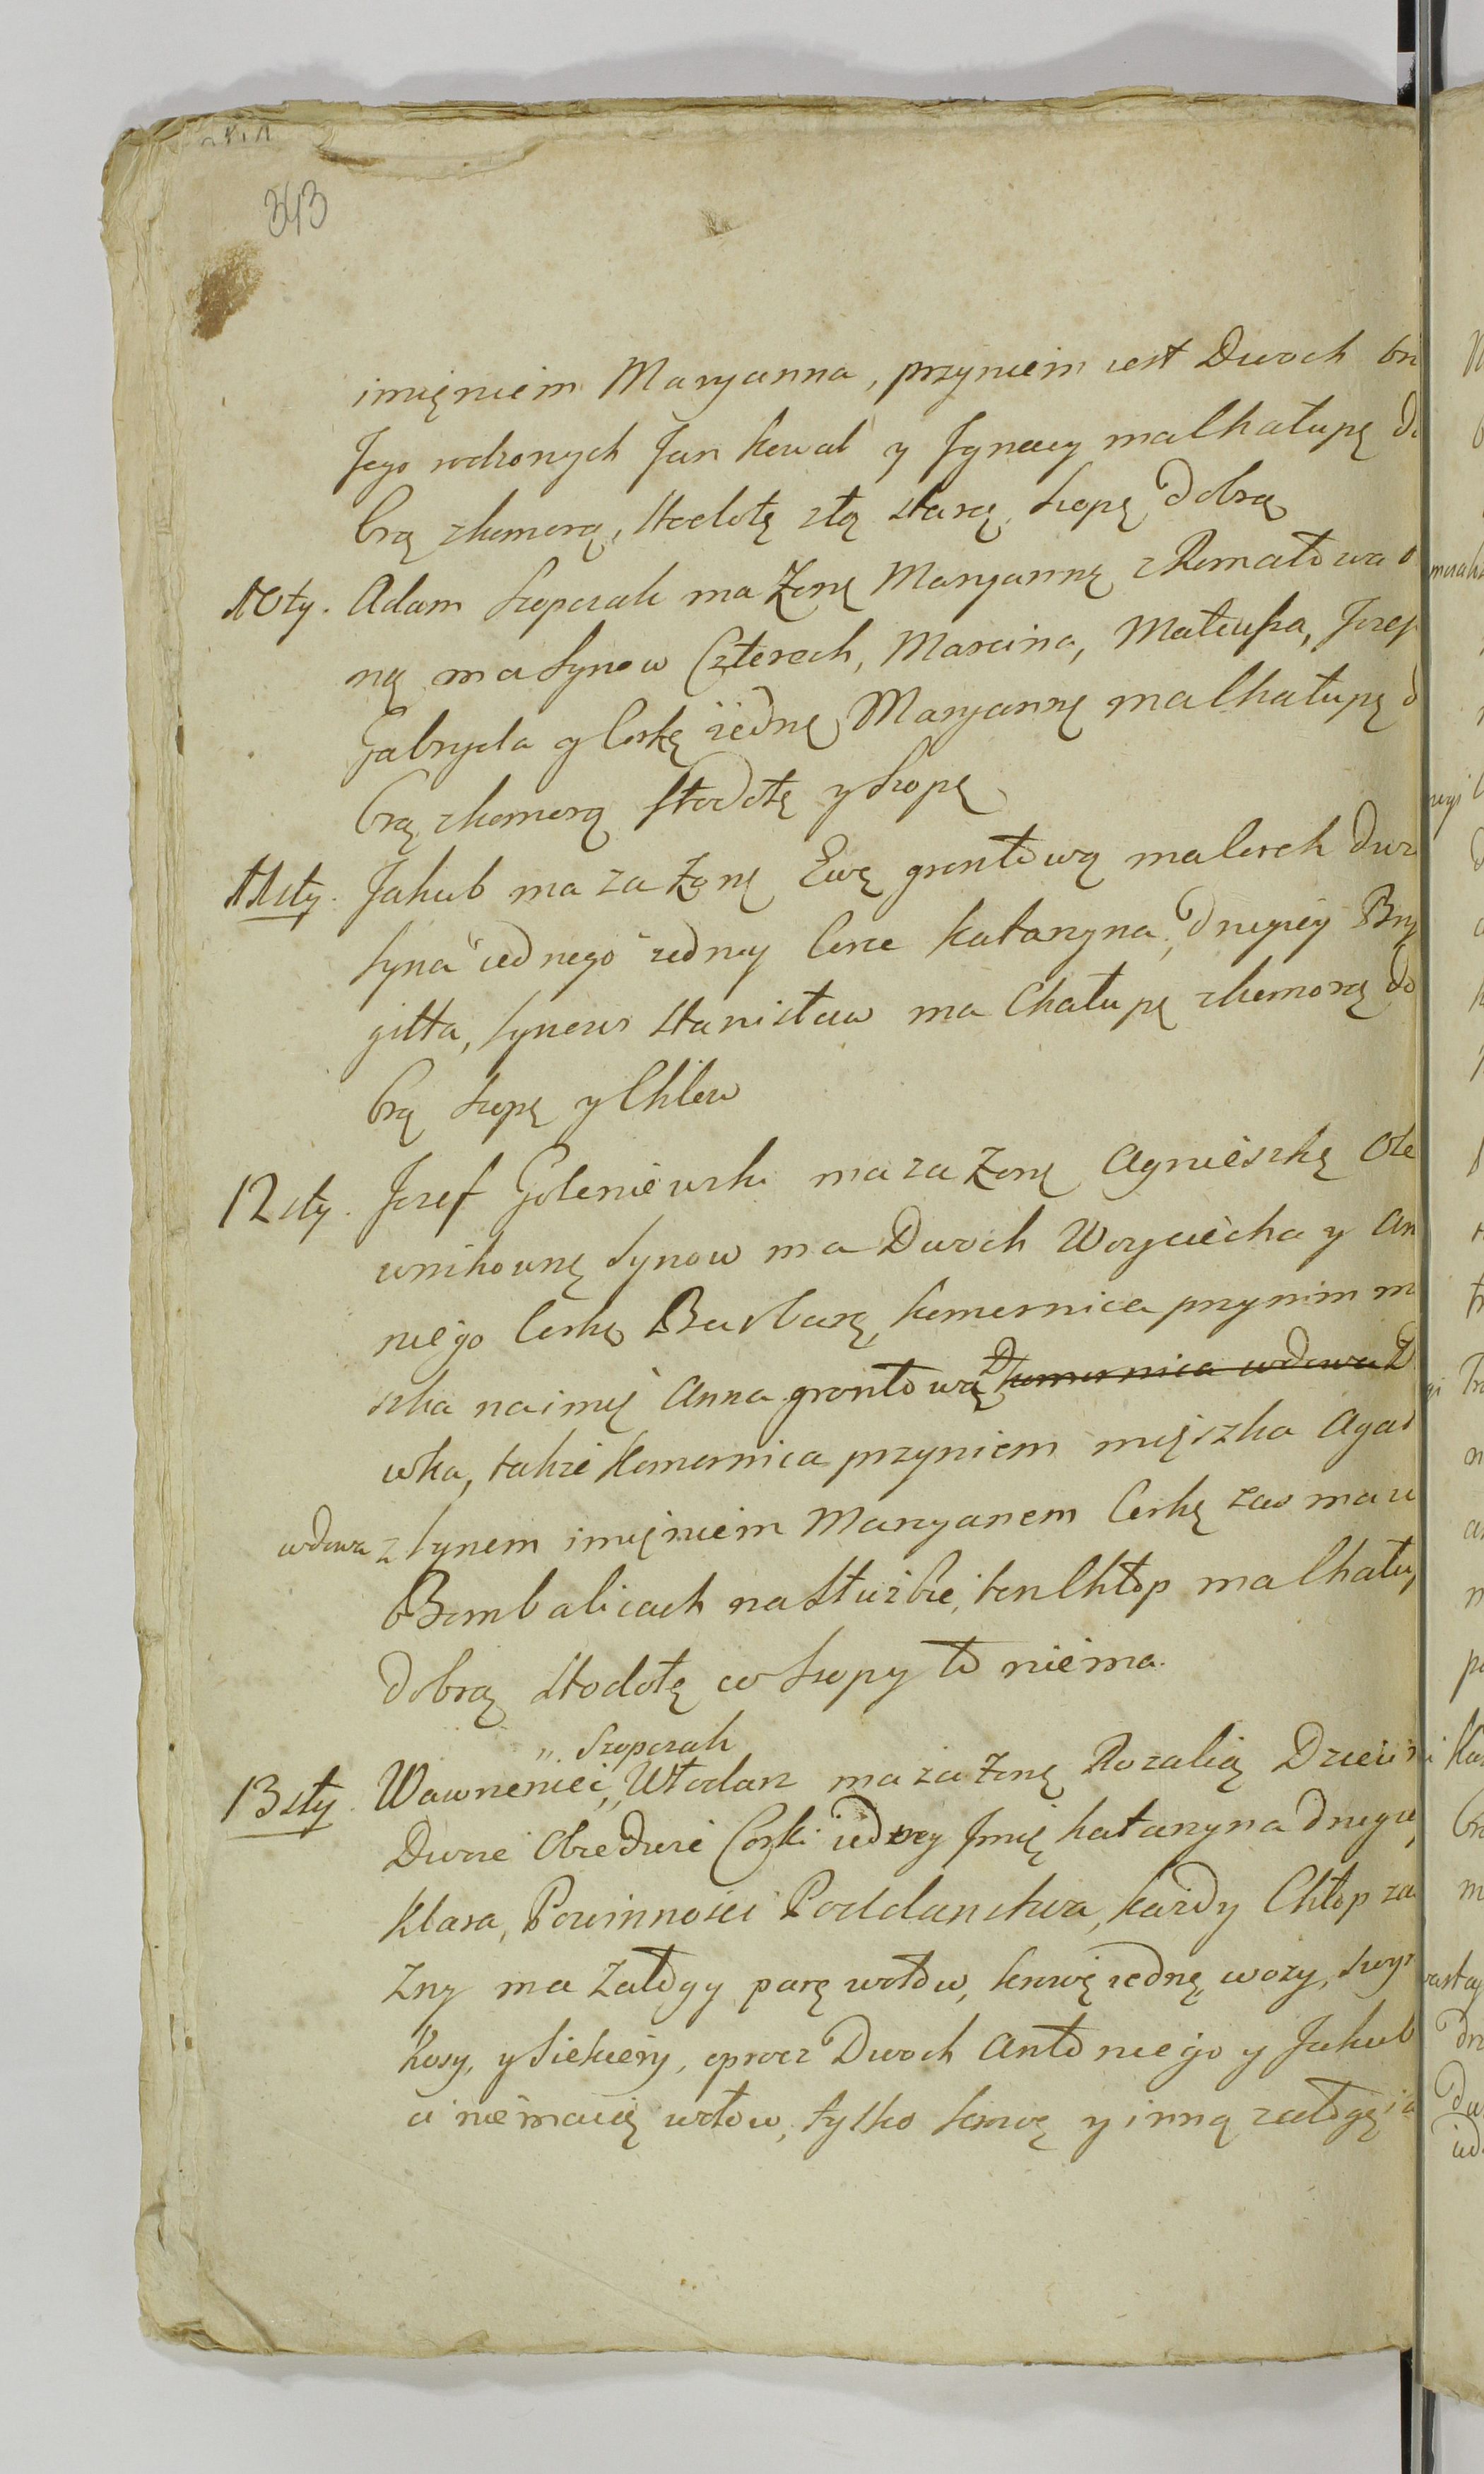 343
imięniem Maryanna, przyniem iest Dwoch br
Jego rodzonych Jan kowal y Jgnacy malhałupę do
brą zkomorą, stodołę złą starą, szopę dobrą
10ty. Adam Szopczak ma Zonę Maryannę z Romałowa
ną ma Synow Czterech, Marcina, Mateusza, Jozef
Gabryela y Corkę iednę Maryannę malhałupę d
brą zkomorą stodołę y szopę
11sty. Jakub ma za Zonę Ewę grontową maCorek dwi
syna iednego iedney Corce katarzyna, drugiey Bry
gitta, synowi Stanisław ma Chałupę zkomorą do
brą szopę y Chlew
12sty. Jozef Goleniewski ma za Zonę Agnieszkę Ole
wnikownę Synow ma Dwoch Woyciecha y An
niego Corkę Barbarę, komornica przynim m
szka naimię Anna grontową komornica wdowa D
wka, takze komornica przyniem mięszka Agat
wdowa z synem imięniem Maryanem Corkę zas ma w
Bombalicach nasłuzbie, tenChłop malhału
dobrą stodołę co szopy to niema.
„ Szopczak
13sty Wawrzeniec, Włodarz ma za Zonę Rozalią Dziew
Dwoie Obiedwie Corki iedney Jmię katarzyna drugie
Klara, Powinnosci Poddanstwa, kazdy Chłop za
Zny ma Załogy parę wołow, krowę iednę, wozy,
kosy, y Siekiery, oprocz Dwoch Antoniego y Jakub
ci niemaią wołow, tylko krowę y inną załogę ia